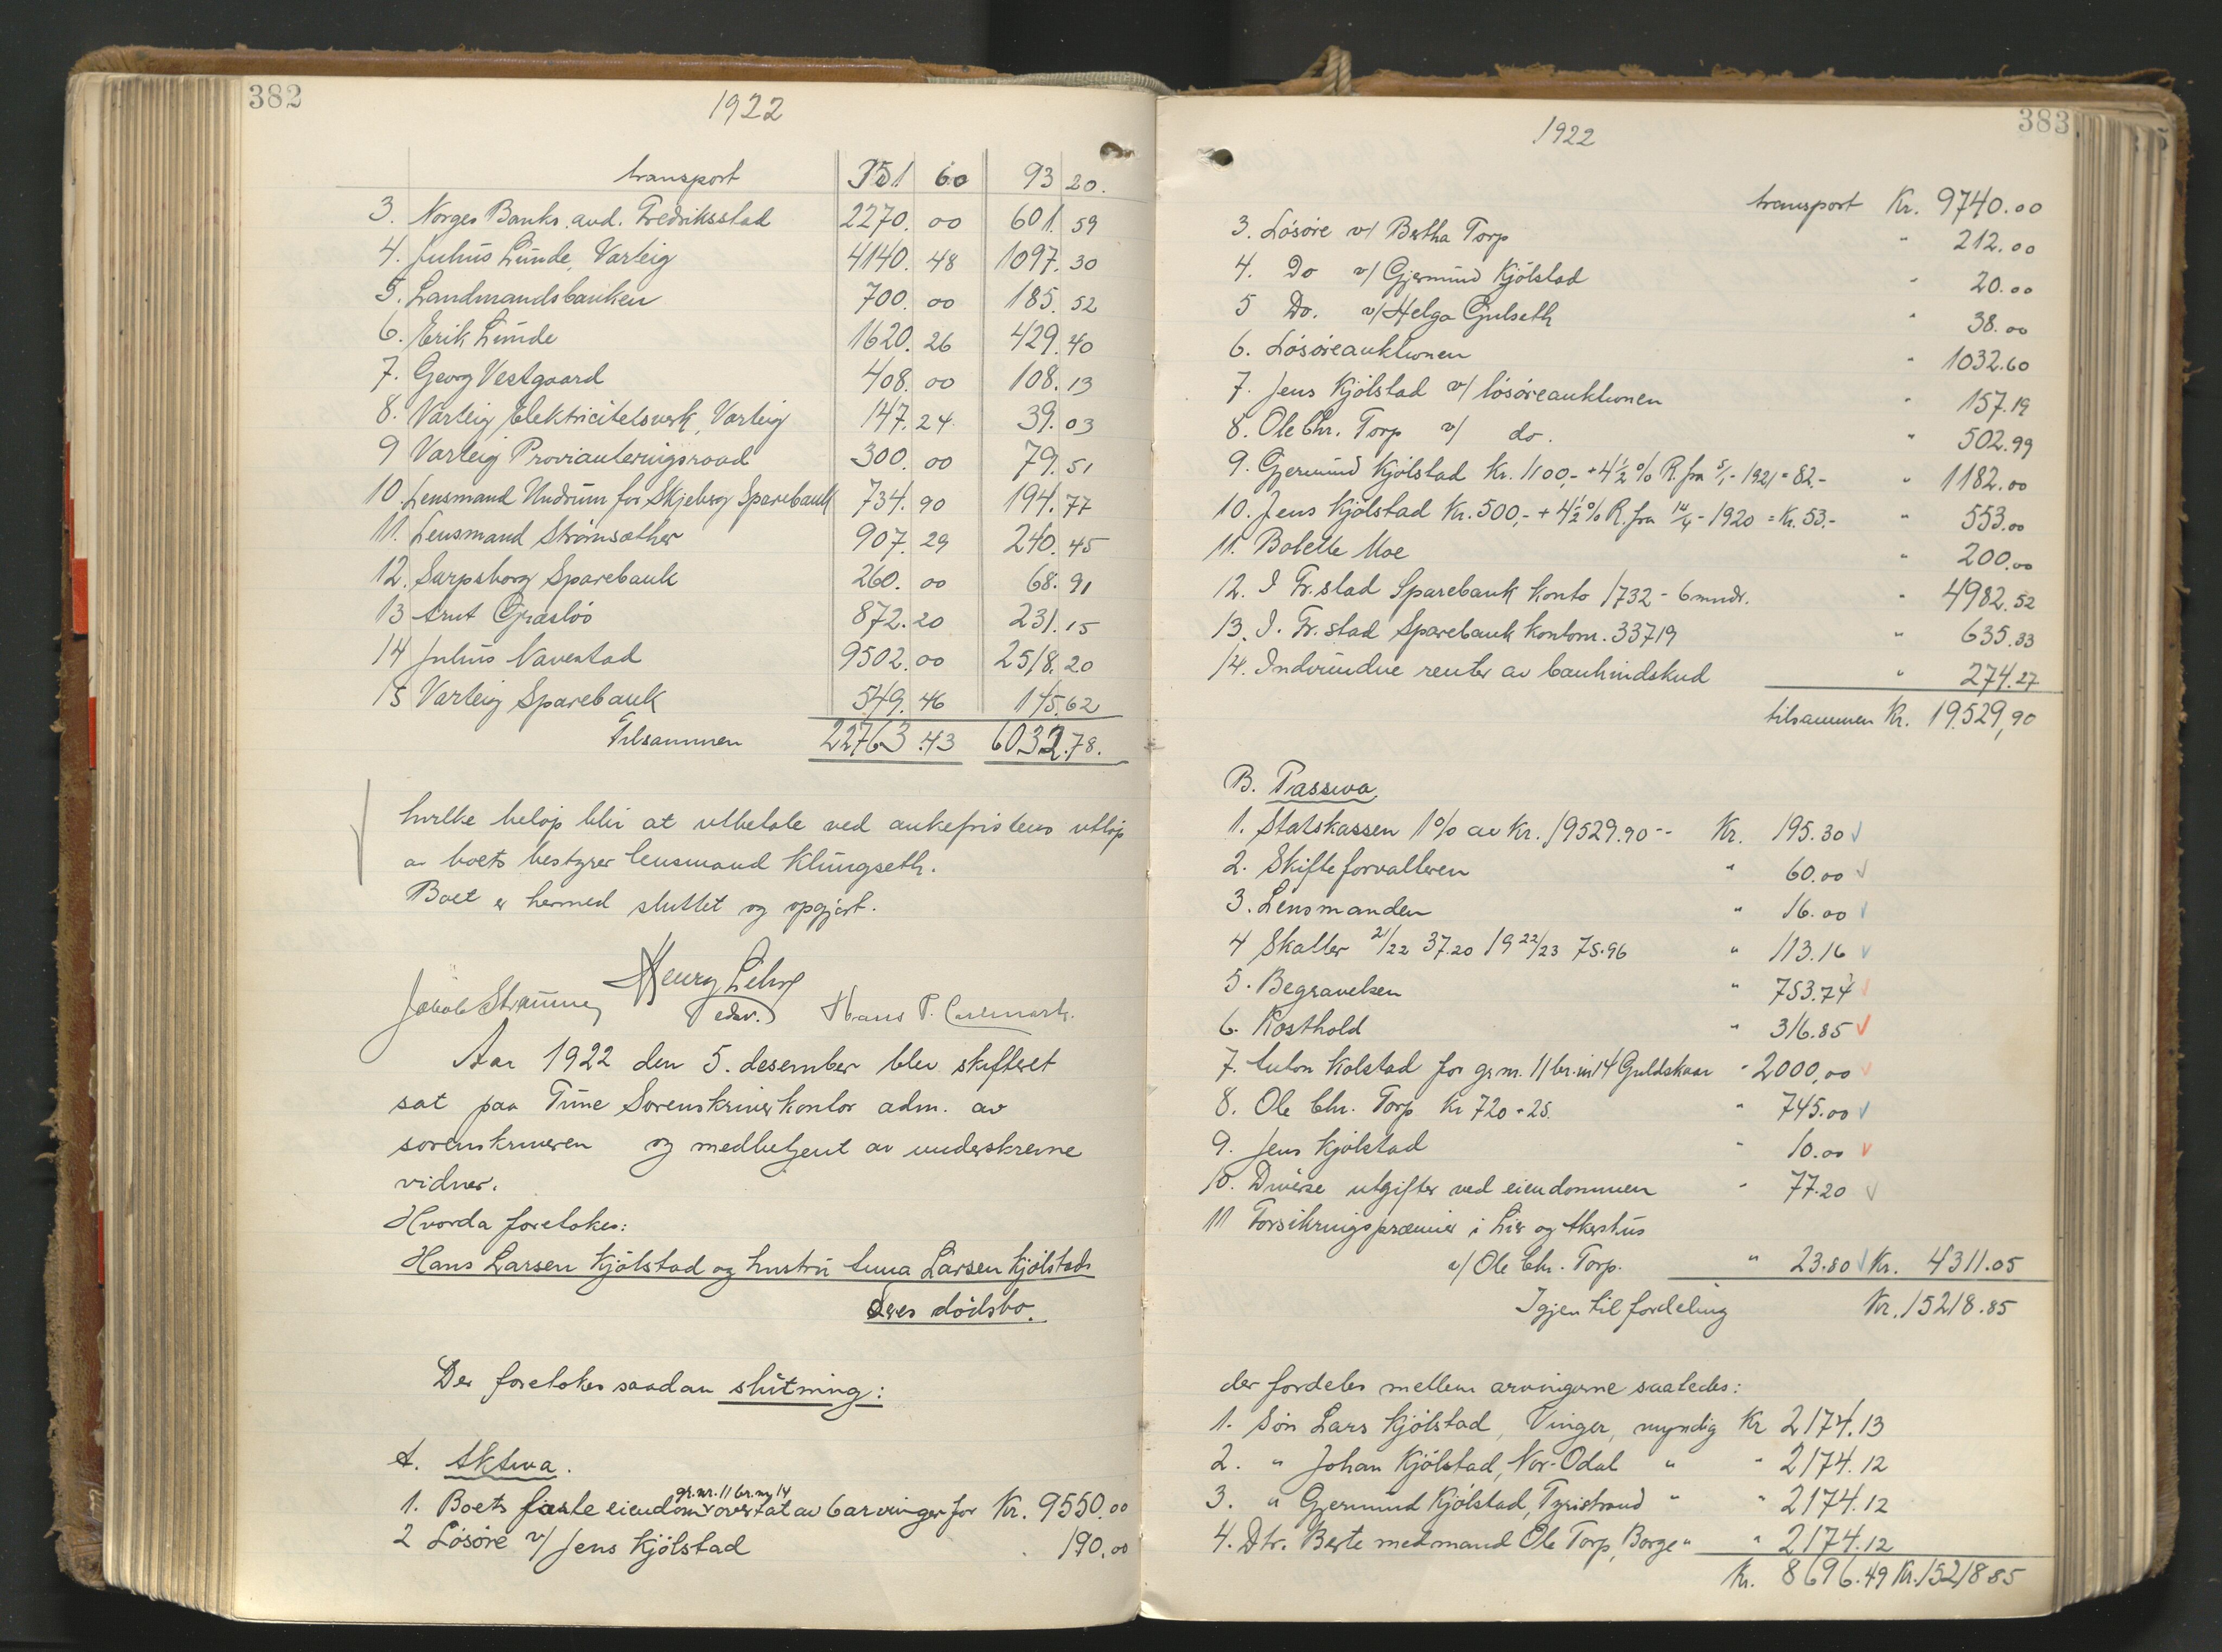 382
1922
transport 351 60 93 20.
3. Norges Banks avd. Fredriksstad 2270. 00 601. 59
4. Julius Lunde, Varteig 4140. 48 1097. 30
5. Landmandsbanken 700. 00 185. 52
6. Erik Lunde 1620. 26 429. 40
7. Georg Vestgaard 408. 00 108. 13
8. Varteig Elektricitetsverk, Varteig 147. 24. 39. 03
9 Varteig Provianteringsraad 300. 00 79. 51
10. Lensmand Undrum for Skjeberg Sparebank 734. 90 194. 77
11. Lensmand Strømsæther 907. 29 240. 45
12. Sarpsborg Sparebank 260. 00 68. 91
13 Arnt Græsløs 872. 20 231. 15
14 Julius Navestad 9502. 00 2518. 20
15 Varteig Sparebank 549. 46 145. 62
Tilsammen 22763.43 6032.78.
hvilke beløp blir at utbetale ved ankefristens utløp
av boets bestyrer lensmand Klungseth.
Boet er hermed sluttet og opgjort.
Henry Lehre
edsv.
Jakob Strømnes Hans P.
Aar 1922 den 5. desember blev skifteret
sat paa Tune Sorenskriverkontor adm. av
sorenskriveren og medbetjent av underskrevne
vidner.
Hvorda foretokes:
Hans Larsen Kjölstad og hustru Anna Larsen Kjölstads
deres dödsbo.
Der foretokes saadan slutning:
A. Aktiva.
gr.nr. 11 br.nr. 14
1. Boets faste eiendom v overtat av 6 arvinger for Kr. 9550.00
2 Lösöre v/ Jens Kjölstad 190.00
383
1922
transport Kr. 9740.00
3. Lösöre v/ Bertha Torp " 212.00
4. Do v/ Gjermund Kjölstad " 20.00
5 Do. v/ Helga Gulseth " 38.00
6. Lösöreauktionen " 1032.60
7. Jens Kjölstad v/ lösöreauktionen " 157.19
8. Ole Chr. Torp v/ do. " 502.99
9. Gjermund Kjölstad Kr. 1100,- + 4½% R. fra 5/1 - 1921 = 82.- " 1182.00
10. Jens Kjölstad Kr. 500,- + 4½% R. fra 14/4 - 1920 = Kr. 53.- " 553.00
11. Bolette Moe " 200.00
12. I Fr.stad Sparebank konto 1732 - 6 mndr. " 4982.52
13. I. Fr.stad Sparebank kontonr. 33719 " 635.33
14. Indvundne renter av bankindskud " 274.27
tilsammen Kr. 19.529,90
B. Passiva
1. Statskassen 1% av Kr. 19529.90 -- Kr. 195.30 ✓
2. Skifteforvalteren " 60.00 ✓
3. Lensmanden " 16.00 ✓
4 Skatter 21/22 37.20 1922/23 75.96 " 113.16 ✓
5. Begravelsen " 753.74 ✓
6. Kosthold " 316.85 ✓
7. Anton Kolstad for gr.nr. 11 br.nr 14 Guldskaar " 2000,00 ✓
8. Ole Chr. Torp Kr 720 + 25. " 745.00 ✓
9. Jens Kjölstad " 10.00 ✓
10. Diverse utgifter ved eiendommen " 77.20 ✓
11 Forsikringspræmier i Lier og Akershus
v/ Ole Chr. Torp. " 23.80 ✓ Kr. 4311.05
Igjen til fordeling Kr. 15218.85
der fordeles mellem arvingerne saaledes:
1. Sön Lars Kjölstad, Vinger, myndig Kr 2174.13
2. " Johan Kjölstad, Nor-Odal " " 2174.12
3. " Gjermund Kjölstad, Tyristrand " " 2174.12
4. Dtr. Berte med mand Ole Torp, Borge " " 2174.12
Kr. 8696.49 Kr. 15218 85